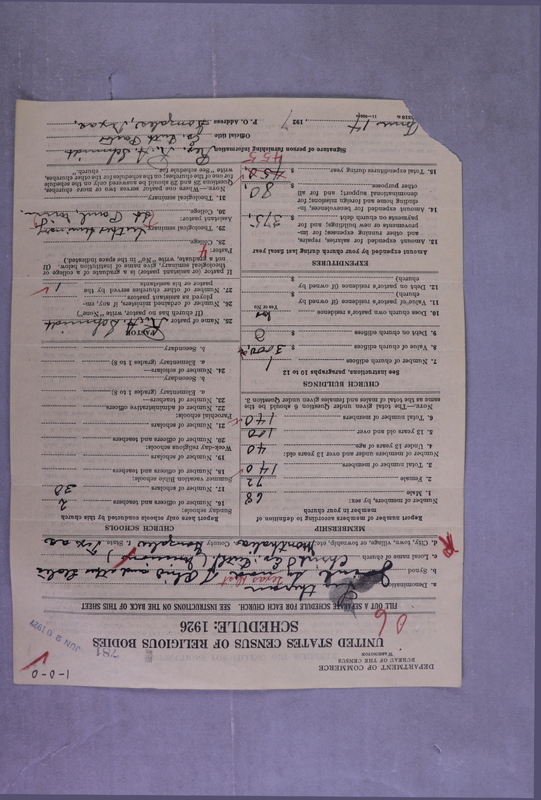 1-0-0
DEPARTMENT OF COMMERCE
BUREAU OF THE CENSUS
WASHINGTON
781
JUN 20 1927
UNITED STATES CENSUS OF RELIGIOUS BODIES
SCHEDULE: 1926
FILL OUT A SEPARATE SCHEDULE FOR EACH CHURCH. SEE INSTRUCTIONS ON THE BACK OF THIS SHEET
a. Denomination
b. Synod
Joint Synod of Ohio and other States
Texas Dist
c. Local name of church
Christ Ev. Luth.
d. City, town, village, or township, etc. Monthalia County Gonzales State Texas
Report number of members according to definition of member in your church
Number of members, by sex:
1. Male 68
2. Female 72
3. Total number of members 140
Number of members under and over 13 years old:
4. Under 13 years of age 40
5. 13 years old and over 100
6. Total number of members 140
Note.—The total given under Question 6 should be the same as the total of males and females given under Question 3.
CHURCH BUILDINGS
See instructions, paragraphs 10 to 12
7. Number of church edifices 1
8. Value of church edifices $ 3000.
9. Debt on church edifices $ 0
10. Does church own pastor's residence no
Yes or No
11. Value of pastor's residence (if owned by church) $
12. Debt on pastor's residence (if owned by church) $
EXPENDITURES
Amount expended by your church during last fiscal year
13. Amount expended for salaries, repairs, and other running expenses; for improvements or new buildings; and for payments on church debt $ 375,
14. Amount expended for benevolence, including home and foreign missions; for denominational support; and for all other purposes $ 80,
15. Total expenditures during year $ 455
CHURCH SCHOOLS
Report here only schools conducted by this church
Sunday schools:
16. Number of officers and teachers 2
17. Number of scholars 30
Summer vacation Bible schools:
18. Number of officers and teachers
19. Number of scholars
Week-day religious schools:
20. Number of officers and teachers
21. Number of scholars
Parochial schools:
22. Number of administrative officers
23. Number of teachers—
a. Elementary (grades 1 to 8)
b. Secondary
24. Number of scholars—
a. Elementary (grades 1 to 8)
b. Secondary
PASTOR
25. Name of pastor Schmidt
(If church has no pastor, write "None")
26. Number of ordained ministers, if any, employed as assistant pastors
27. Number of other churches served by the pastor or his assistants 1
If pastor or assistant pastor is a graduate of a college or theological seminary, give name of institution below. (If not a graduate, write "No" in the space indicated.)
Pastor:
28. College
29. Theological seminary Luther Seminary
St Paul, Minn.
Assistant pastor:
30. College
31. Theological seminary
Note.—Where one pastor serves two or more churches, Questions 28 and 29 should be answered only on the schedule for one of the churches; on the schedules for the other churches, write "See schedule for church."
Signature of person furnishing information Schmidt
Official title Ev. Luth. Pastor
P. O. Address Gonzales, Texas,
June 14 1927